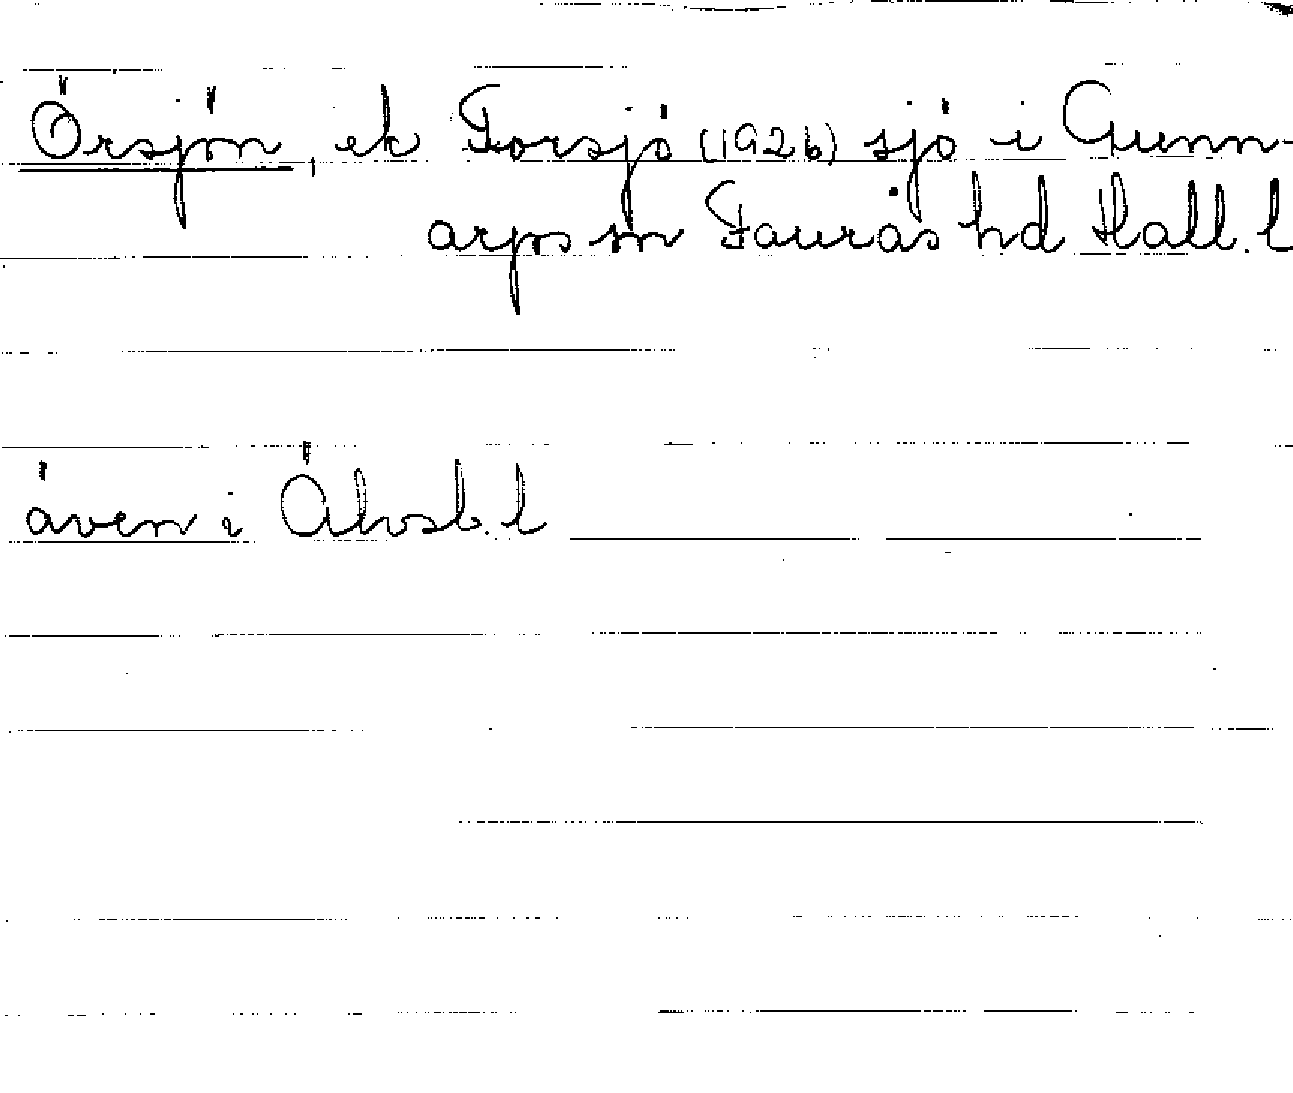 Örsjön, ek Forsjö (1926) sjö i Gunn-
arps sn Faurås hd Hall. l
även i Älvsb. l